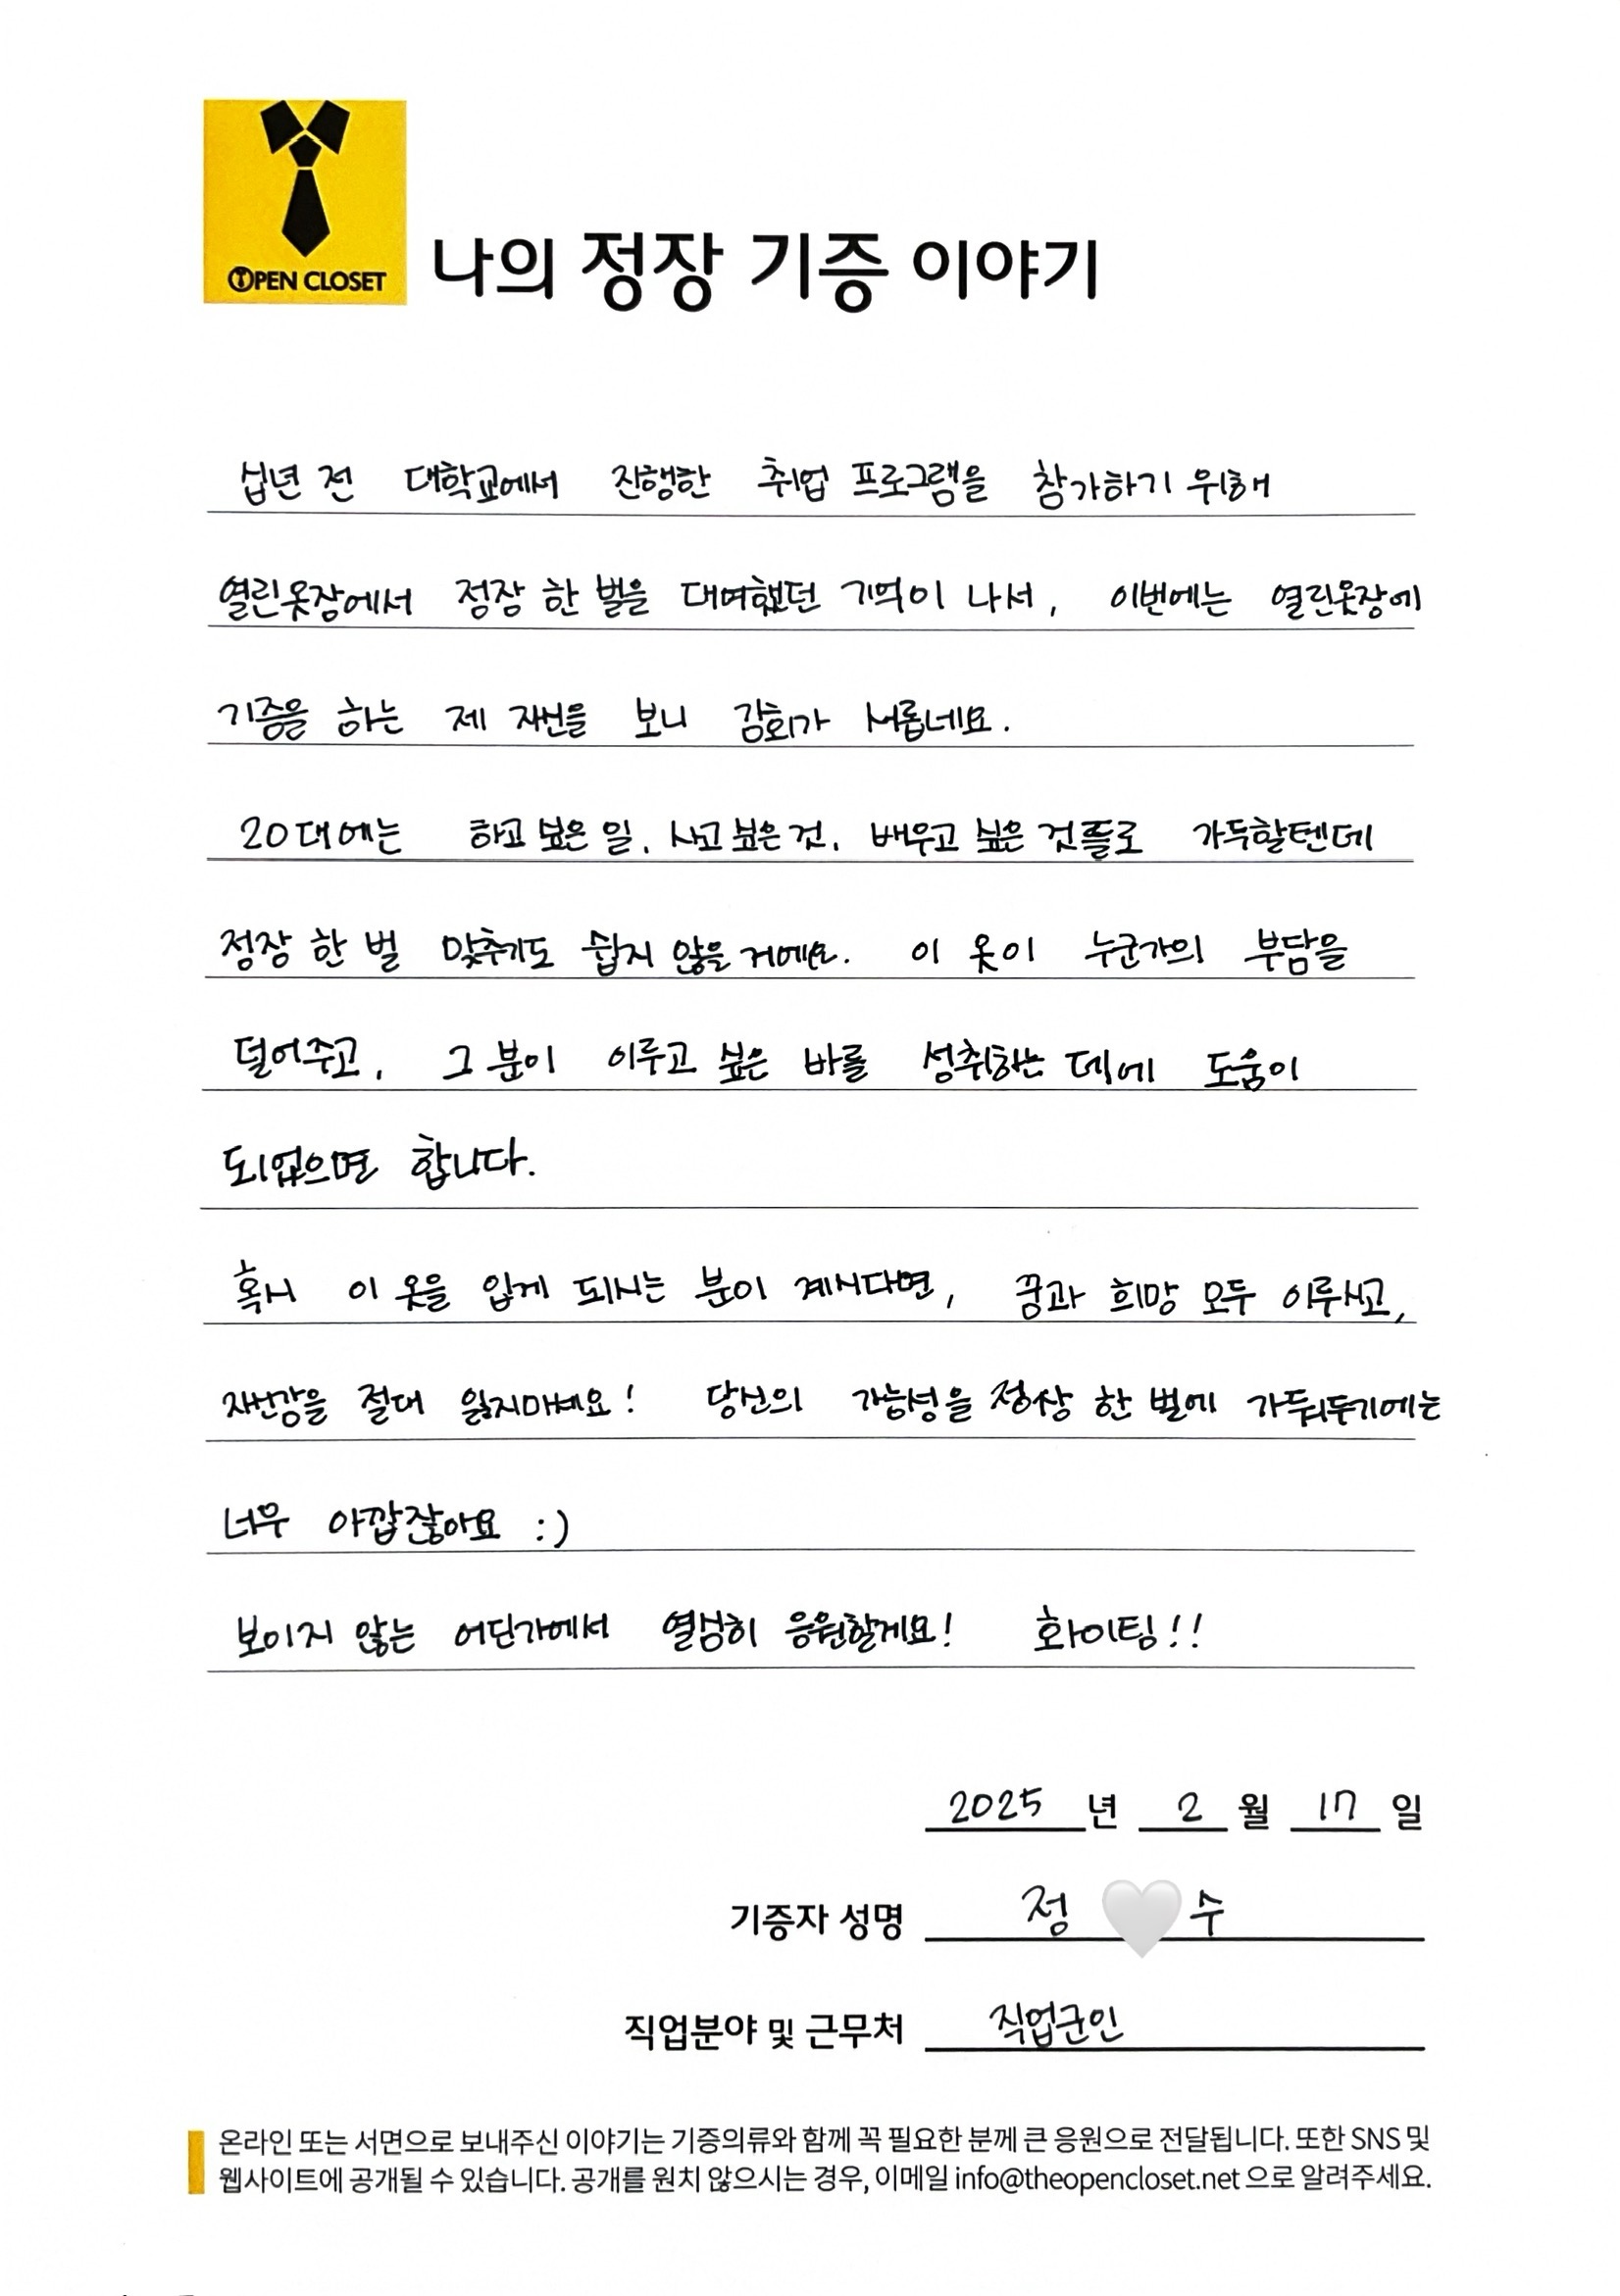 OPEN CLOSET
나의 정장 기증 이야기
십년 전 대학교에서 진행한 취업 프로그램을 참가하기 위해
열린옷장에서 정장 한 벌을 대여했던 기억이 나서, 이번에는 열린옷장에
기증을 하는 제 자신을 보니 감회가 새롭네요.
20대에는 하고 싶은 일, 사고 싶은 것, 배우고 싶은 것들로 가득할텐데
정장 한 벌 맞추기도 쉽지 않을 거예요. 이 옷이 누군가의 부담을
덜어주고, 그 분이 이루고 싶은 바를 성취하는 데에 도움이
되었으면 합니다.
혹시 이 옷을 입게 되시는 분이 계시다면, 꿈과 희망 모두 이루시고,
자신감을 절대 잃지마세요! 당신의 가능성을 정장 한 벌에 가둬두기에는
너무 아깝잖아요 :)
보이지 않는 어딘가에서 열심히 응원할게요! 화이팅!!
2025 년 2 월 17 일
기증자 성명 정 수
직업분야 및 근무처 직업군인
온라인 또는 서면으로 보내주신 이야기는 기증의류와 함께 꼭 필요한 분께 큰 응원으로 전달됩니다. 또한 SNS 및
웹사이트에 공개될 수 있습니다. 공개를 원치 않으시는 경우, 이메일 info@theopencloset.net 으로 알려주세요.